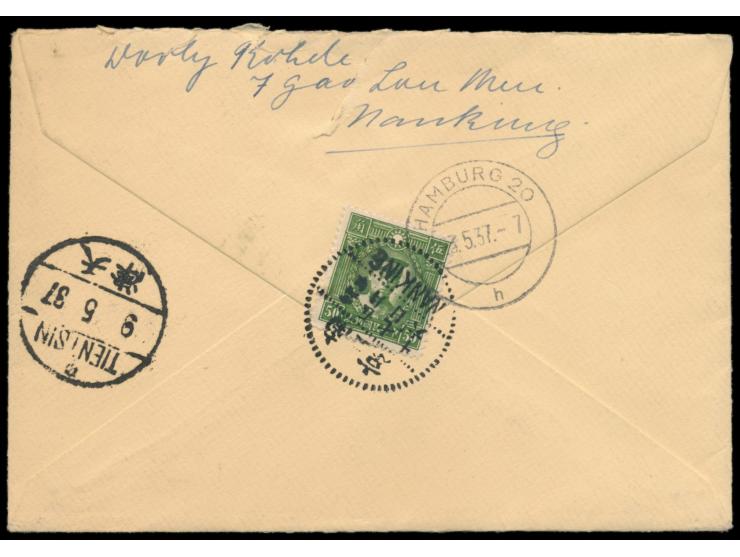 Dorly Rohde
7 Gao Lou Men.
Nanking.
HAMBURG 20
5.37.-7
h
津天
9 5 37
TIENTSIN
NANKING
50